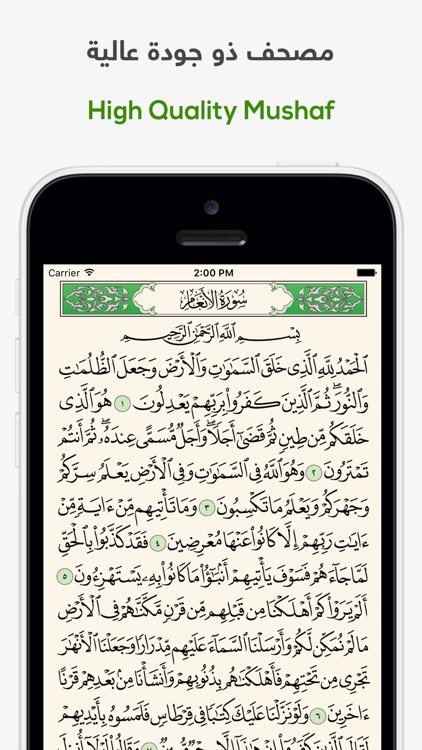 مصحف ذو جودة عالية
High Quality Mushaf
Carrier 2:00 PM
سُورَةُ الأَنْعَامِ
بِسْمِ ٱللَّهِ ٱلرَّحْمَٰنِ ٱلرَّحِيمِ
ٱلْحَمْدُ لِلَّهِ ٱلَّذِى خَلَقَ ٱلسَّمَٰوَٰتِ وَٱلْأَرْضَ وَجَعَلَ ٱلظُّلُمَٰتِ
وَٱلنُّورَ ۖ ثُمَّ ٱلَّذِينَ كَفَرُوا۟ بِرَبِّهِمْ يَعْدِلُونَ ١ هُوَ ٱلَّذِى
خَلَقَكُم مِّن طِينٍ ثُمَّ قَضَىٰٓ أَجَلًا ۖ وَأَجَلٌ مُّسَمًّى عِندَهُۥ ۖ ثُمَّ أَنتُمْ
تَمْتَرُونَ ٢ وَهُوَ ٱللَّهُ فِى ٱلسَّمَٰوَٰتِ وَفِى ٱلْأَرْضِ يَعْلَمُ سِرَّكُمْ
وَجَهْرَكُمْ وَيَعْلَمُ مَا تَكْسِبُونَ ٣ وَمَا تَأْتِيهِم مِّنْ ءَايَةٍ مِّنْ
ءَايَٰتِ رَبِّهِمْ إِلَّا كَانُوا۟ عَنْهَا مُعْرِضِينَ ٤ فَقَدْ كَذَّبُوا۟ بِٱلْحَقِّ
لَمَّا جَآءَهُمْ فَسَوْفَ يَأْتِيهِمْ أَنۢبَٰٓؤُا۟ مَا كَانُوا۟ بِهِۦ يَسْتَهْزِءُونَ ٥
أَلَمْ يَرَوْا۟ كَمْ أَهْلَكْنَا مِن قَبْلِهِم مِّن قَرْنٍ مَّكَّنَّٰهُمْ فِى ٱلْأَرْضِ
مَا لَمْ نُمَكِّن لَّكُمْ وَأَرْسَلْنَا ٱلسَّمَآءَ عَلَيْهِم مِّدْرَارًا وَجَعَلْنَا ٱلْأَنْهَٰرَ
تَجْرِى مِن تَحْتِهِمْ فَأَهْلَكْنَٰهُم بِذُنُوبِهِمْ وَأَنشَأْنَا مِنۢ بَعْدِهِمْ قَرْنًا
ءَاخَرِينَ ٦ وَلَوْ نَزَّلْنَا عَلَيْكَ كِتَٰبًا فِى قِرْطَاسٍ فَلَمَسُوهُ بِأَيْدِيهِمْ